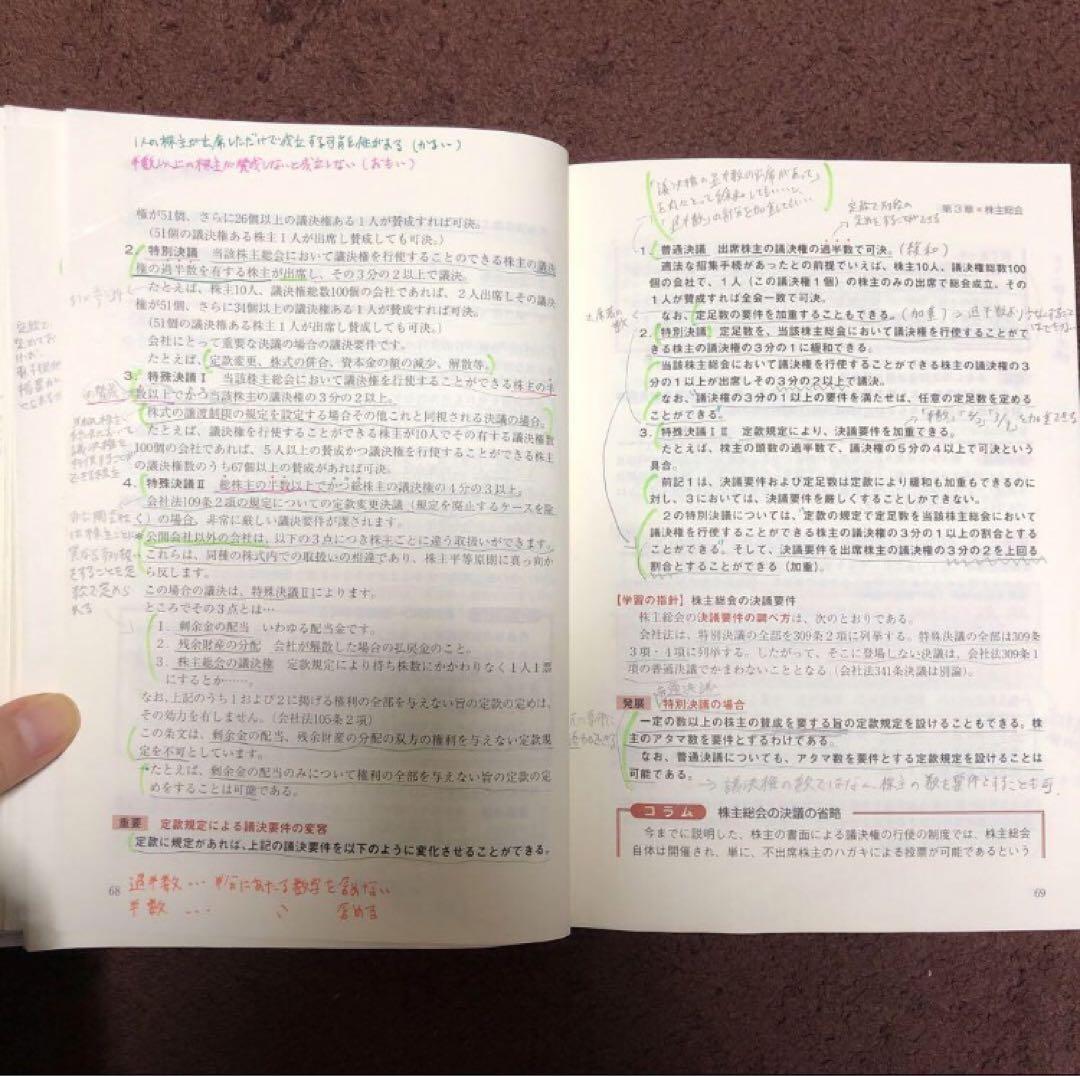 1人の株主が出席しただけで成立する可能性がある(かるい)
半数以上の株主が賛成しないと成立しない(おもい)
権が51個、さらに26個以上の議決権ある1人が賛成すれば可決。
(51個の議決権ある株主1人が出席し賛成しても可決。)
2. 特別決議 当該株主総会において議決権を行使することのできる株主の議決
権の過半数を有する株主が出席し、その3分の2以上で議決。
たとえば、株主10人、議決権総数100個の会社であれば、2人出席しその議決
権が51個、さらに34個以上の議決権ある1人が賛成すれば可決。
(51個の議決権ある株主1人が出席し賛成しても可決。)
会社にとって重要な決議の場合の議決要件です。
たとえば、定款変更、株式の併合、資本金の額の減少、解散等。
3. 特殊決議Ⅰ 当該株主総会において議決権を行使することができる株主の半
数以上でかつ当該株主の議決権の3分の2以上。
株式の譲渡制限の規定を設定する場合その他これと同視される決議の場合。
たとえば、議決権を行使することができる株主が10人でその有する議決権数
100個の会社であれば、5人以上の賛成かつ議決権を行使することができる株主
の議決権数のうち67個以上の賛成があれば可決。
4. 特殊決議Ⅱ 総株主の半数以上でかつ総株主の議決権の4分の3以上。
会社法109条2項の規定についての定款変更決議(規定を廃止するケースを除
く)の場合。非常に厳しい議決要件が課されます。
公開会社以外の会社は、以下の3点につき株主ごとに違う取扱いができます。
これらは、同種の株式内での取扱いの相違であり、株主平等原則に真っ向か
ら反します。
この場合の議決は、特殊決議Ⅱによります。
ところでその3点とは…
1. 剰余金の配当 いわゆる配当金です。
2. 残余財産の分配 会社が解散した場合の払戻金のこと。
3. 株主総会の議決権 定款規定により持ち株数にかかわりなく1人1票
にするとか……。
なお、上記のうち1および2に掲げる権利の全部を与えない旨の定款の定めは、
その効力を有しません。(会社法105条2項)
この条文は、剰余金の配当、残余財産の分配の双方の権利を与えない定款規
定を不可としています。
たとえば、剰余金の配当のみについて権利の全部を与えない旨の定款の定
めをすることは可能である。
重要 定款規定による議決要件の変容
定款に規定があれば、上記の議決要件を以下のように変化させることができる。
68
過半数… 半分にあたる数字を含めない
半数 … 〃 含める
「議決権の過半数の出席があって」
第3章●株主総会
1. 普通決議 出席株主の議決権の過半数で可決。(緩和)
適法な招集手続があったとの前提でいえば、株主10人、議決権総数100
個の会社で、1人(この議決権1個)の株主のみの出席で総会成立。その
1人が賛成すれば全会一致で可決。
なお、定足数の要件を加重することもできる。(加重)
2. 特別決議 定足数を、当該株主総会において議決権を行使することがで
きる株主の議決権の3分の1に緩和できる。
当該株主総会において議決権を行使することができる株主の議決権の3
分の1以上が出席しその3分の2以上で議決。
なお、議決権の3分の1以上の要件を満たせば、任意の定足数を定める
ことができる。
3. 特殊決議ⅠⅡ 定款規定により、決議要件を加重できる。
たとえば、株主の頭数の過半数で、議決権の5分の4以上で可決という
具合。
前記1は、決議要件および定足数は定款により緩和も加重もできるのに
対し、3においては、決議要件を厳しくすることしかできない。
2の特別決議については、定款の規定で定足数を当該株主総会において
議決権を行使することができる株主の議決権の3分の1以上の割合とする
ことができる。そして、決議要件を出席株主の議決権の3分の2を上回る
割合とすることができる(加重)。
【学習の指針】株主総会の決議要件
株主総会の決議要件の調べ方は、次のとおりである。
会社法は、特別決議の全部を309条2項に列挙する。特殊決議の全部は309条
3項・4項に列挙する。したがって、そこに登場しない決議は、会社法309条1
項の普通決議でかまわないこととなる(会社法341条決議は別論)。
普通決議
発展 特別決議の場合
一定の数以上の株主の賛成を要する旨の定款規定を設けることもできる。株
主のアタマ数を要件とするわけである。
なお、普通決議についても、アタマ数を要件とする定款規定を設けることは
可能である。
→議決権の数ではなく、株主の数を要件とすることも可.
コラム 株主総会の決議の省略
今までに説明した、株主の書面による議決権の行使の制度では、株主総会
自体は開催され、単に、不出席株主のハガキによる投票が可能であるという
69